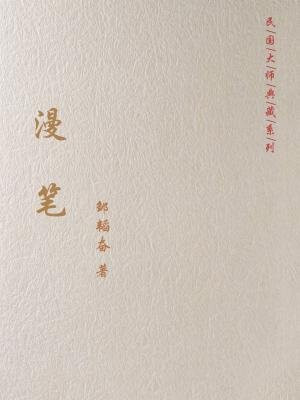 民|国|大|师|典|藏|系|列
漫笔
邹韬奋 著